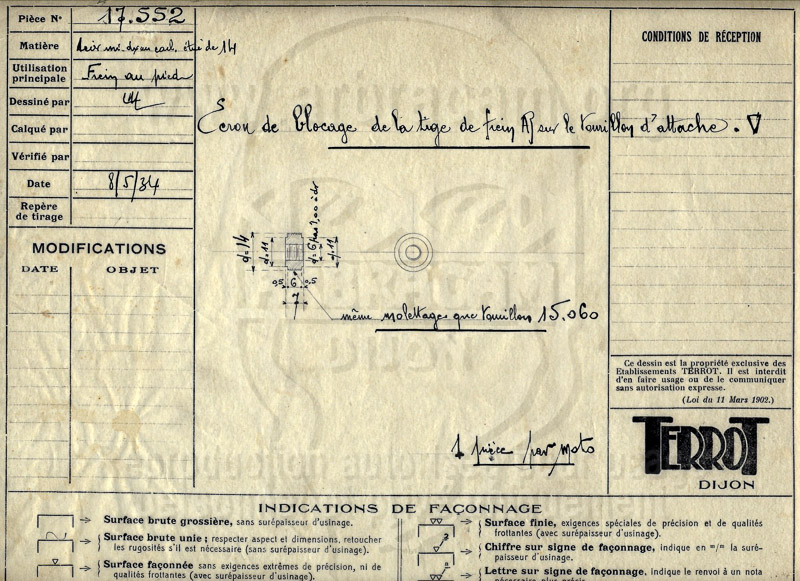 Pièce N° 17.552
Matière Acier mi-dur au carb. étiré de 14
Utilisation principale Frein au pied
Dessiné par
Calqué par
Vérifié par
Date 8/5/34
Repère de tirage
MODIFICATIONS
DATE OBJET
Ecrou de blocage de la tige de frein AR sur le tourillon d'attache. ∇
d=14
d=11
d=6 pas 1,00 à dr
d=11
0,5 6 0,5
7
même molettage que tourillon 15.060
1 pièce par moto
CONDITIONS DE RÉCEPTION
Ce dessin est la propriété exclusive des
Etablissements TERROT. Il est interdit
d'en faire usage ou de le communiquer
sans autorisation expresse.
(Loi du 11 Mars 1902.)
TERROT
DIJON
INDICATIONS DE FAÇONNAGE
Surface brute grossière, sans surépaisseur d'usinage.
Surface brute unie ; respecter aspect et dimensions, retoucher
les rugosités s'il est nécessaire (sans surépaisseur d'usinage).
Surface façonnée sans exigences extrêmes de précision, ni de
qualités frottantes (avec surépaisseur d'usinage).
Surface finie, exigences spéciales de précision et de qualités
frottantes (avec surépaisseur d'usinage).
Chiffre sur signe de façonnage, indique en m/m la suré-
paisseur d'usinage.
Lettre sur signe de façonnage, indique le renvoi à un nota